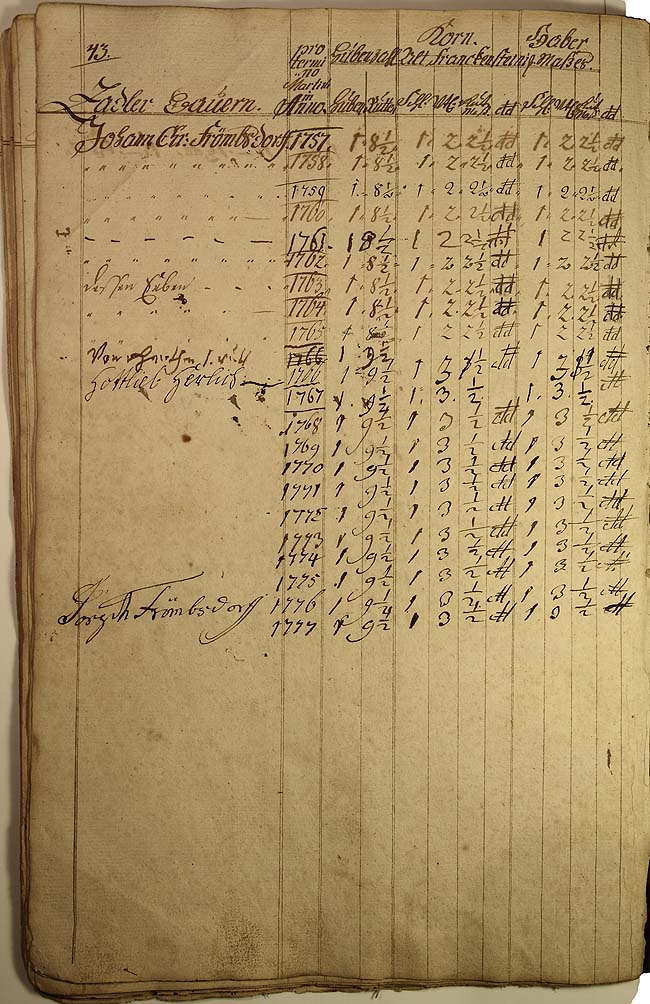 43.
pro termino Martini Anno.
Hubenzahl
Korn.
Haber
Alt Franckensteinisch Maßes.
Zadler Bauern.
Huben Ruthen
Johann Chr: Frömbsdorff 1757. 1 8½ 1 2 2½ dd 1 2 2½ dd
" " " " " " 1758. 1 8½ 1 2 2½ dd 1 2 2½ dd
" " " " " " 1759 1 8½ 1 2 2½ dd 1 2 2½ dd
" " " " " " 1760 1 8½ 1 2 2½ dd 1 2 2½ dd
– – – – – – 1761 1 8½ 1 2 2½ dd 1 2 2½ dd
" " " " " " 1762 1 8½ 1 2 2½ dd 1 2 2½ dd
dessen Erben – – – 1763 1 8½ 1 2 2½ dd 1 2 2½ dd
" " " " " 1764 1 8½ 1 2 2½ dd 1 2 2½ dd
1765 1 8½ 1 2 2½ dd 1 2 2½ dd
1766 1 9½
Gottlieb Herlich 1766 1 9½ 1 3 ½ dd 1 3 ½ dd
1767 1 9¼ 1. 3. ½ 1. 3. ½ dd
1768 1 9½ 1 3 ½ dd 1 3 ½ dd
1769 1 9½ 1 3 ½ dd 1 3 ½ dd
1770 1 9½ 1 3 ½ dd 1 3 ½ dd
1771 1 9½ 1 3 ½ dd 1 3 ½ dd
1772 1 9½ 1 3 ½ dd 1 3 ½ dd
1773 1 9½ 1 3 ½ dd 1 3 ½ dd
1774 1 9½ 1 3 ½ dd 1 3 ½ dd
1775 1 9½ 1 3 ½ dd 1 3 ½ dd
Frömbsdorff 1776 1 9¼ 1 3 ½ dd 1 3 ½ dd
1777 1 9½ 1 3 ½ dd 1 3 ½ dd